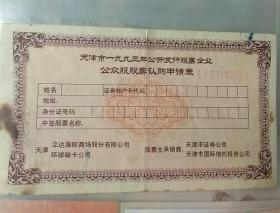 天津市一九九三年公开发行股票企业
公众股股票认购申请表
姓名 证券帐户卡代码
地址:
身份证号码
中签股票名称:
天津 立达国际商场股份有限公司 环球磁卡公司
股票主承销商: 天津市证券公司 天津市国际信托投资公司